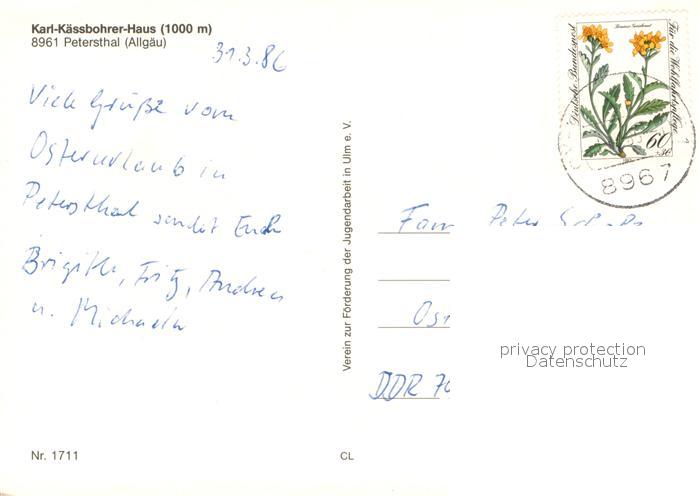 Karl-Kässbohrer-Haus (1000 m)
8961 Petersthal (Allgäu)
31.3.86
Viele Grüße vom
Osterurlaub in
Petersthal sendet Euch
Brigitte, Fritz, Andrea
u. Michaela
Nr. 1711
Verein zur Förderung der Jugendarbeit in Ulm e. V.
CL
Deutsche Bundespost
Für die Wohlfahrtspflege
60
+30
8967
Fam Peter
DDR 70
privacy protection
Datenschutz